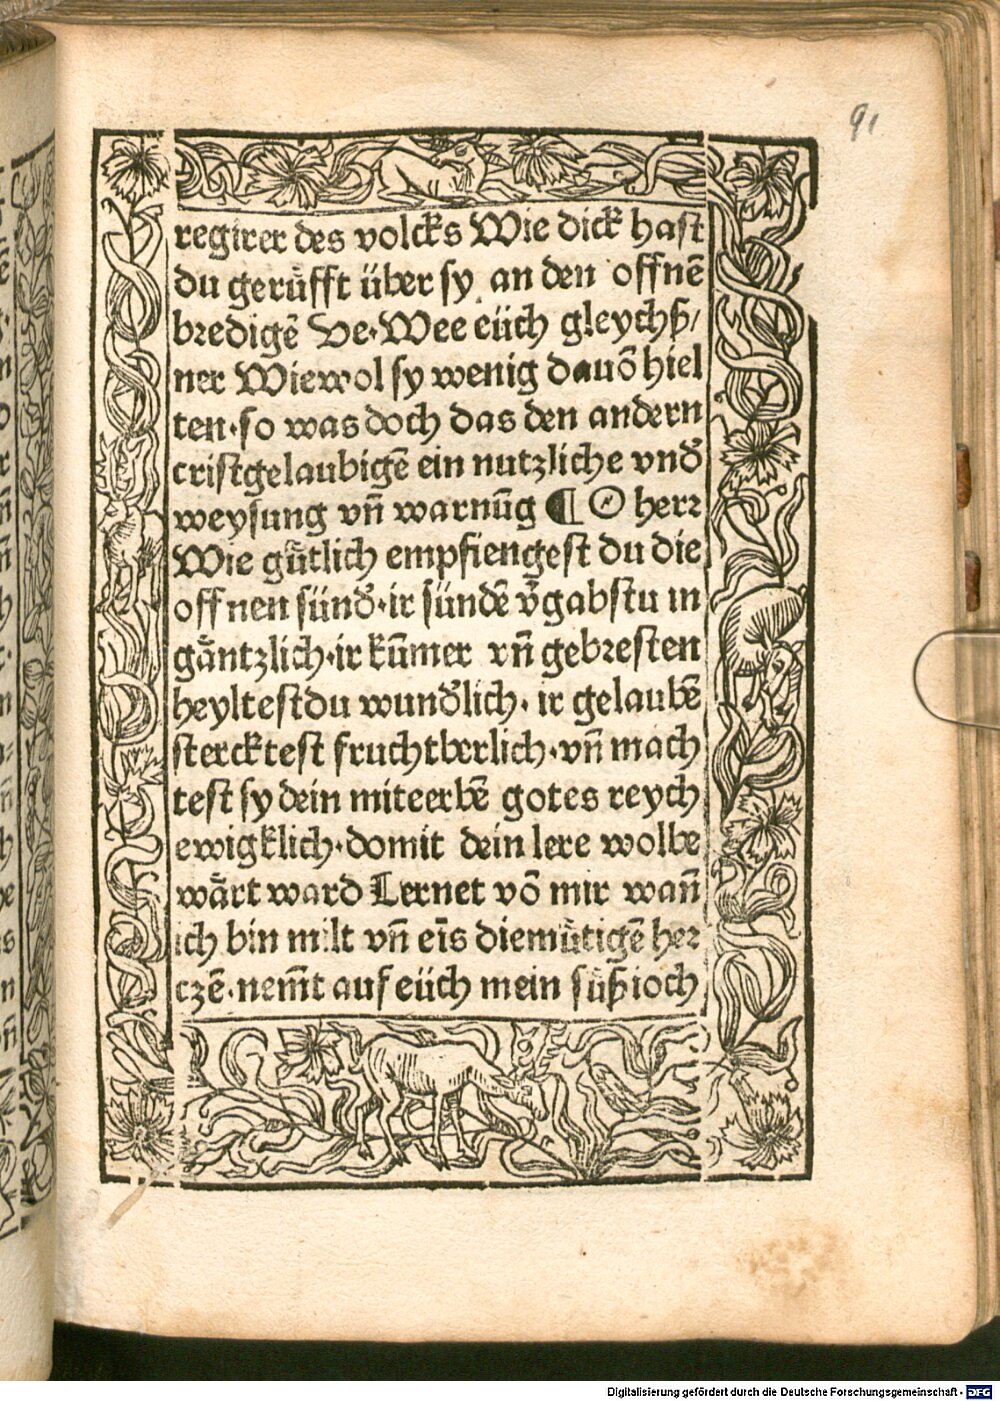 91
regirer des volcks Wie dick hast
du gerůfft über sy an den offnē
bredigē Ve·Wee eüch gleychß/
ner Wiewol sy wenig dauō hiel
ten·so was doch das den andern
cristgelaubigē ein nutzliche vnd̕
weysung vn̄ warnūg ¶ O herꝛ
Wie gůtlich empfiengest du die
offnen sünd̕·ir sündē v̄gabstu in
gäntzlich·ir kūmer vn̄ gebresten
heyltestdu wund̕lich· ir gelaubē
stercktest fruchtberlich·vn̄ mach
test sy dein miteerbē gotes reych
ewigklich·domit dein lere wolbe
wärt ward Lernet vō mir wan̄
ich bin milt vn̄ eīs diemůtigē her
czē·nem̄t auf eüch mein süß ioch
Digitalisierung gefördert durch die Deutsche Forschungsgemeinschaft - DFG